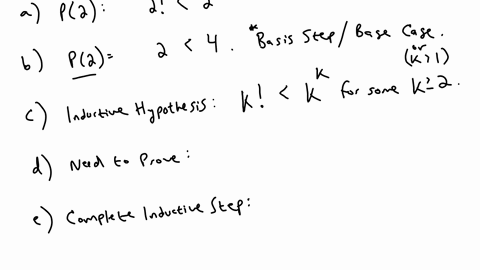 a) P(2): 2! < 2
b) P(2)= 2 < 4. * Basis Step / Base Case.
or
(k>1)
c) Inductive Hypothesis: k! < k^k for some k≥2.
d) Need to Prove:
e) Complete Inductive Step: